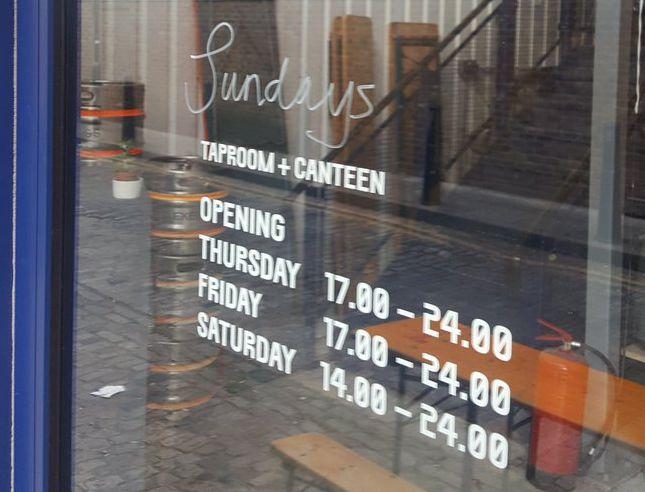 Sundays
TAPROOM + CANTEEN
OPENING
THURSDAY 17.00 – 24.00
FRIDAY 17.00 – 24.00
SATURDAY 14.00 – 24.00